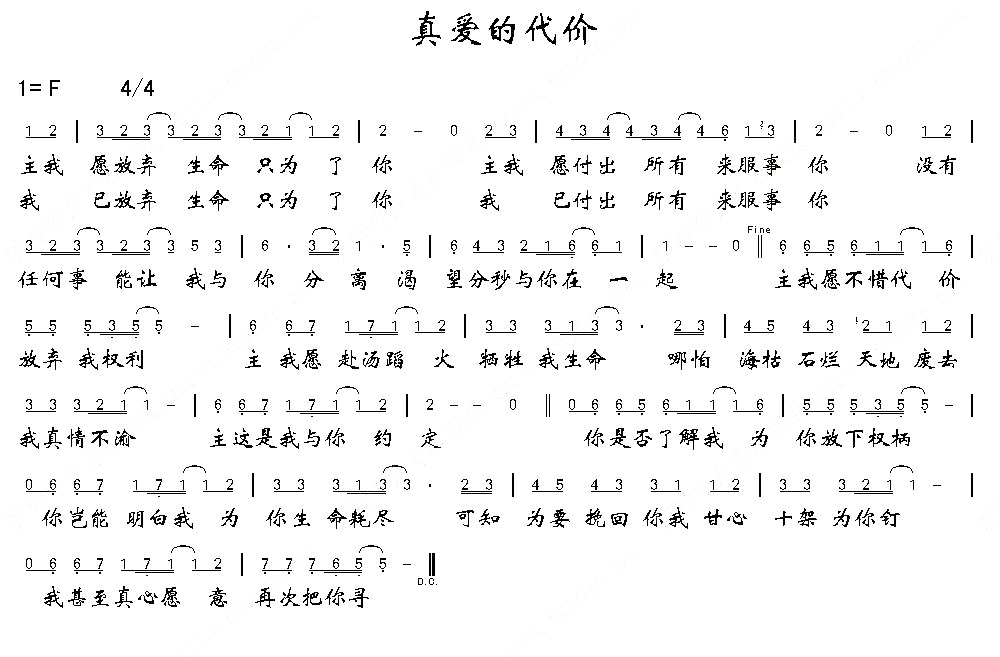 真爱的代价
1= F 4/4
1 2 | 3 2 3 3 2 3 3 2 1 1 2 | 2 - 0 2 3 | 4 3 4 4 3 4 4 6 1 2 3 | 2 - 0 1 2 |
主我 愿放弃 生命 只为 了 你 主我 愿付出 所有 来服事 你 没有
我 已放弃 生命 只为 了 你 我 已付出 所有 来服事 你
3 2 3 3 2 3 3 5 3 | 6 · 3 2 1 · 5 | 6 4 3 2 1 6 6 1 | 1 - - 0 Fine || 6 6 5 6 1 1 1 6 |
任何事 能让 我与 你 分 离 渴 望分秒与你在 一 起 主我愿不惜代 价
5 5 5 3 5 5 - | 6 6 7 1 7 1 1 2 | 3 3 3 1 3 3 · 2 3 | 4 5 4 3 2 1 1 2 |
放弃 我权利 主 我愿 赴汤蹈 火 牺牲 我生命 哪怕 海枯 石烂 天地 废去
3 3 3 2 1 1 - | 6 6 7 1 7 1 1 2 | 2 - - 0 || 0 6 6 5 6 1 1 1 6 | 5 5 5 3 5 5 - |
我真情不渝 主这是我与你 约 定 你是否了解我 为 你放下权柄
0 6 6 7 1 7 1 1 2 | 3 3 3 1 3 3 · 2 3 | 4 5 4 3 3 1 1 2 | 3 3 3 2 1 1 - |
你岂能 明白我 为 你生 命耗尽 可知 为要 挽回 你我 甘心 十架 为你钉
0 6 6 7 1 7 1 1 2 | 7 7 7 6 5 5 - D.C. ||
我甚至真心愿 意 再次把你寻